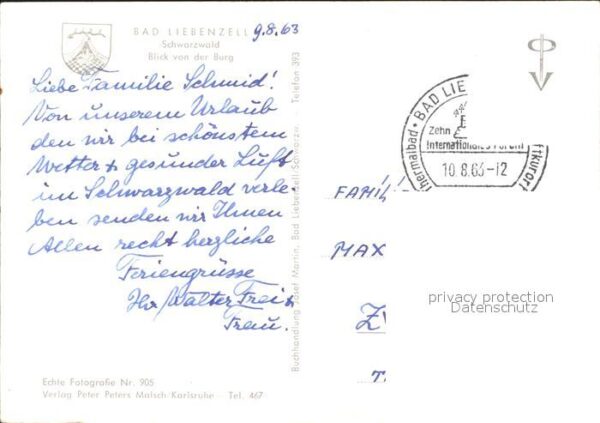 BAD LIEBENZELL
Schwarzwald
Blick von der Burg
9.8.63
Liebe Familie Schmid!
Von unserem Urlaub
den wir bei schönstem
Wetter + gesunder Luft
im Schwarzwald verle-
ben senden wir Ihnen
Allen recht herzliche
Feriengrüsse
Ihr Walter Frei +
Frau.
Echte Fotografie Nr. 905
Verlag Peter Peters Malsch Karlsruhe - Tel. 467
Buchhandlung Josef Martin, Bad Liebenzell-Schwarzw. - Telefon 393
BAD LIE
Zehn
Internationales Forum
10.8.63-12
hermalbad
ftkurort
FAMIL
MAX
privacy protection
Datenschutz